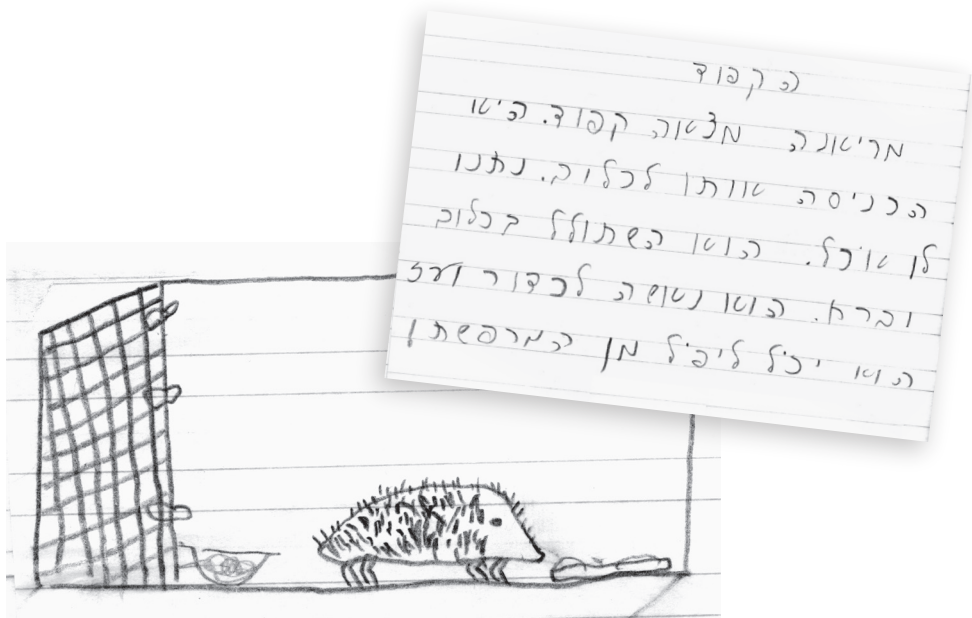 הקפוד
מריאנה מצאה קפוד. היא
הכניסה אותו לכלוב. נתנו
לו אוכל. הוא השתולל בכלוב
וברח. הוא נאשה לכדור ועז
הוא יכול ליפול מן המרפשת